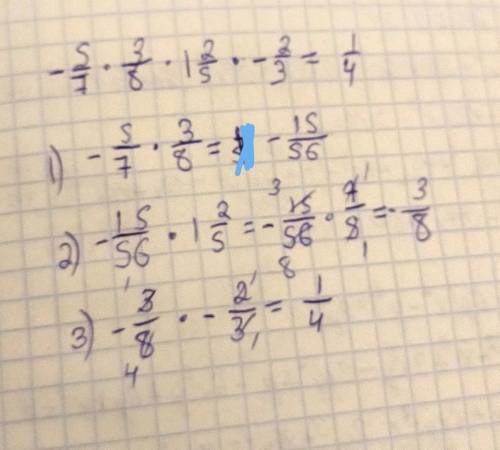 -5/7 · 3/8 · 1 2/5 · -2/3 = 1/4
1) -5/7 · 3/8 = -15/56
2) -15/56 · 1 2/5 = - 3 15/56 8 · 7/8 1 1 = -3/8
3) - 1 3/8 4 · - 2/3 1 1 = 1/4